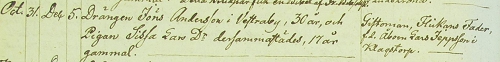 Oct. 31. Dec. 5. Drängen Jöns Anderson i Vestraby, 30 år, och
Pigan Sissa Lars Dr dersammastädes, 17 år
gammal.
Giftoman, Flickans Fader,
f.d. Åboen Lars Jeppsson i
Klagstorp.